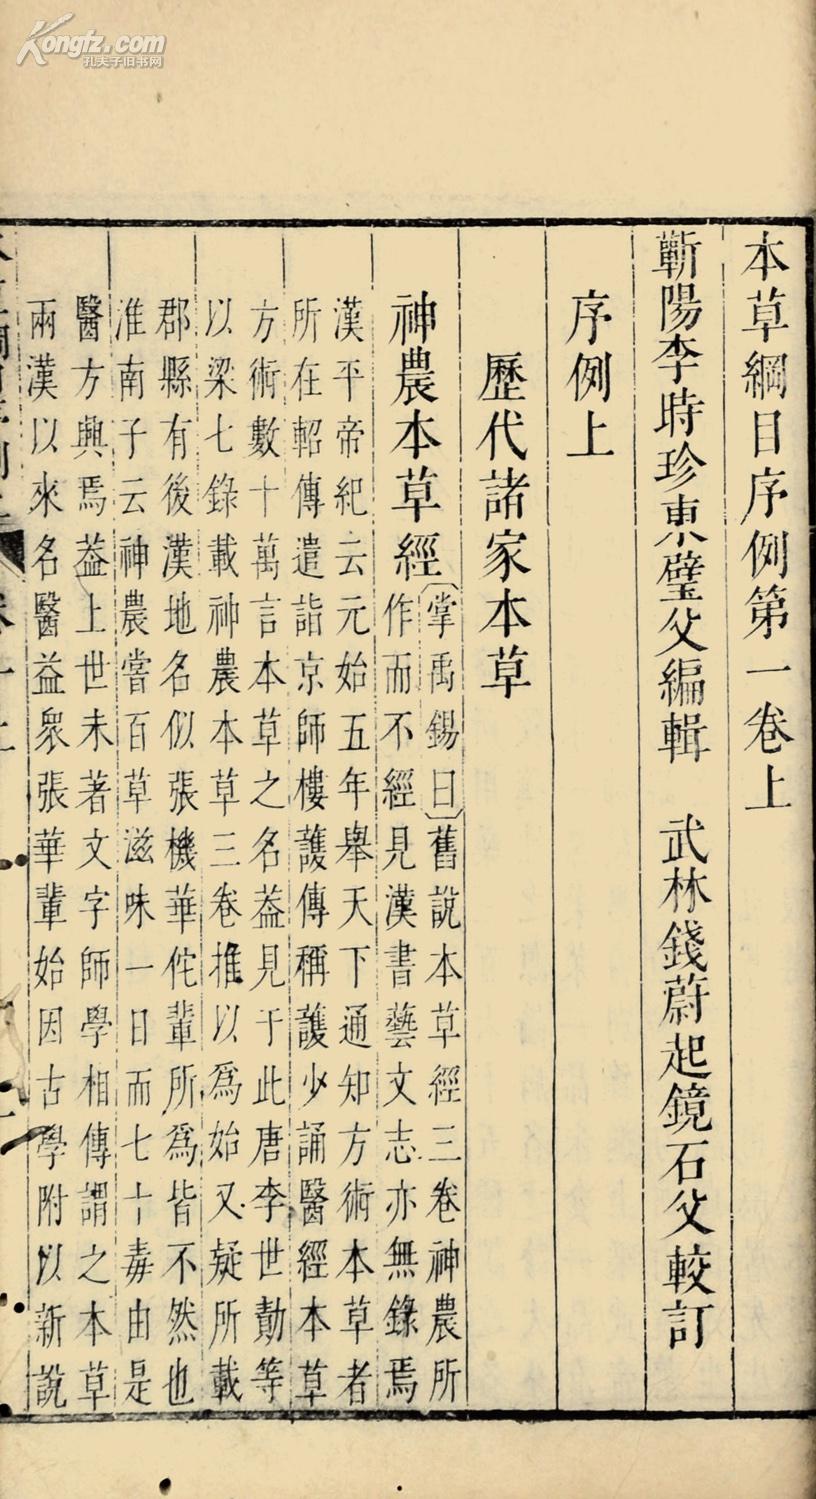 Kongfz.com
孔夫子旧书网
本草綱目序例第一卷上
蘄陽李時珍東璧父編輯 武林錢蔚起鏡石父較訂
序例上
歷代諸家本草
神農本草經
掌禹錫曰舊說本草經三卷神農所
作而不經見漢書藝文志亦無錄焉
漢平帝紀云元始五年舉天下通知方術本草者
所在軺傳遣詣京師樓護傳稱護少誦醫經本草
方術數十萬言本草之名葢見于此唐李世勣等
以梁七錄載神農本草三卷推以爲始又疑所載
郡縣有後漢地名似張機華佗輩所爲皆不然也
淮南子云神農嘗百草滋味一日而七十毒由是
醫方興焉葢上世未著文字師學相傳謂之本草
兩漢以來名醫益衆張華輩始因古學附以新說